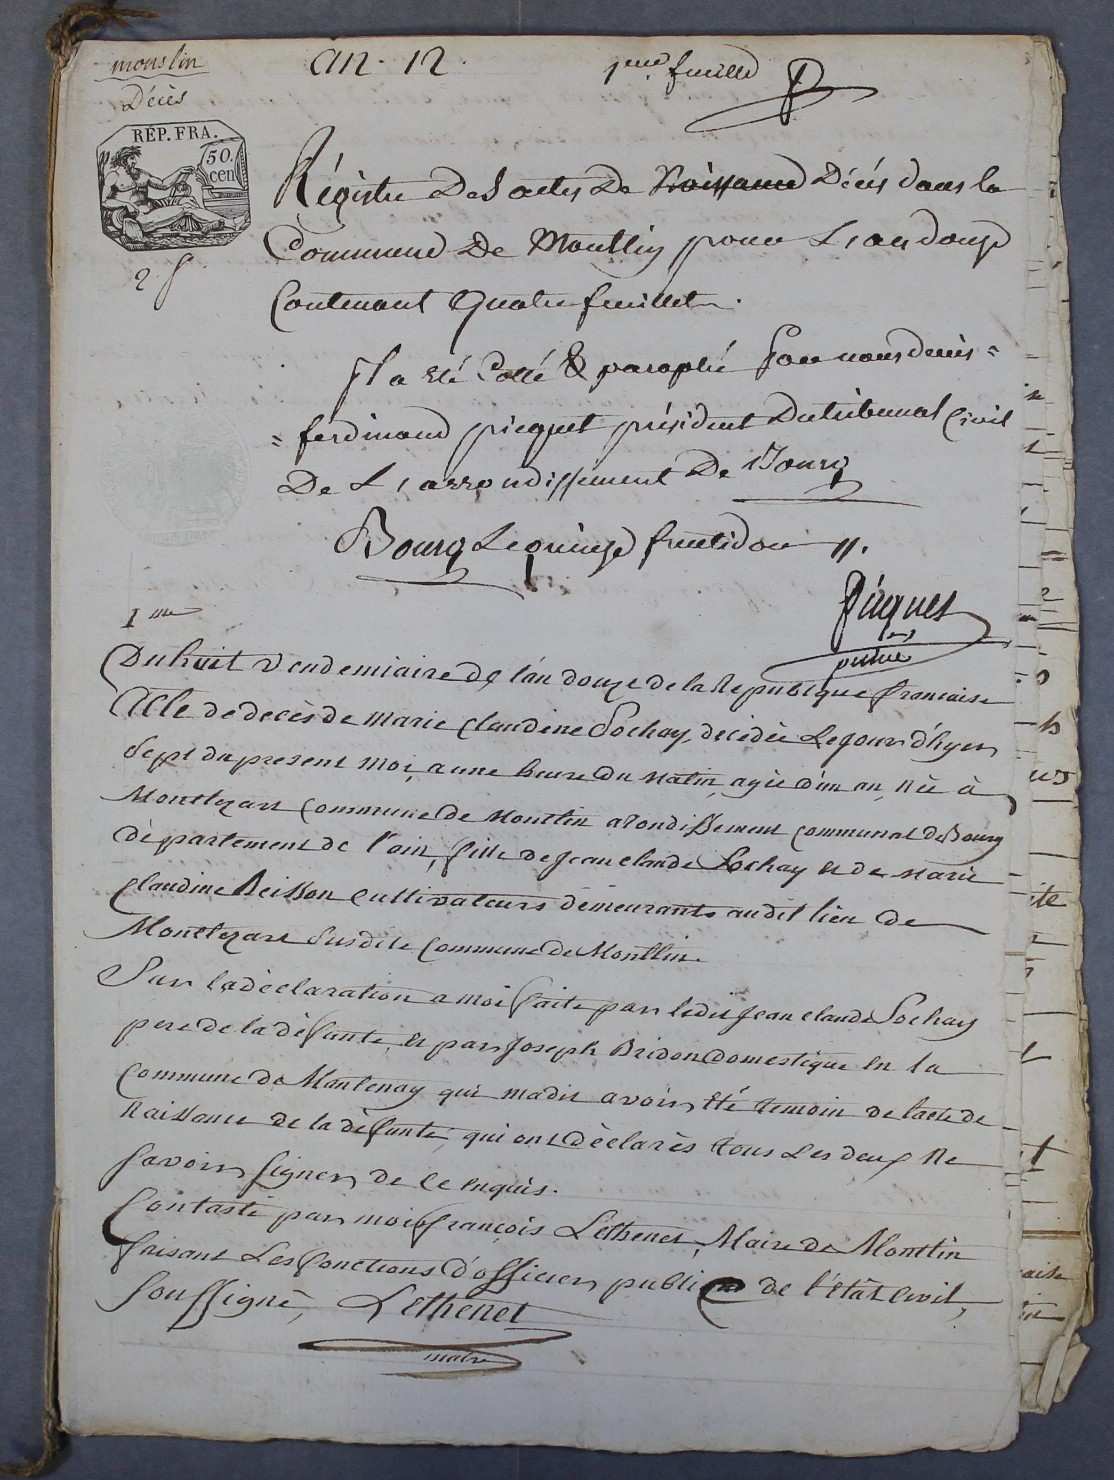 mouslin
Décès
an. 12
1ere feuille
RÉP. FRA.
50.
cen
2 f
Régistre Des actes De Naissance Décés dans la
Commune De Montlin pour L'an douze
Contenant Quatre feuillets.
Il a été Cotté & paraphé Par nous denis =
= ferdinand picquet président Du tribunal Civil
De L'arrondissement De Bourg
Bourg Le quinze fructidor 11.
Picquet
1me
Du huit vendemiaire de l'an douze de la Republique francaise
Acte de decès de marie claudine Pochay, décédée Le jour d'hyer
Sept du present moi, a une heure du matin, agée d'un an, née à
Montlezart commune de Montlin arondissement communal de Bourg
département de l'ain, fille de jean claude Pochay et de marie
claudine Reisson cultivateurs demeurants audit lieu de
Montlezart susdite commune de Montlin.
Sur la déclaration a moi faite par ledit jean claude Pochay
pere de la défunte, et par joseph Bridon domestique en la
commune de Mantenay qui ma dit avoir été temoin de l'acte de
Naissance de la défunte, qui ont déclarés tous les deux Ne
savoir signer de ce enquis.
Contasté par moi françois Lethenet, Maire de Montlin
faisant Les fonctions d'officier public de l'état civil,
Soussigné, Lethenet
maire